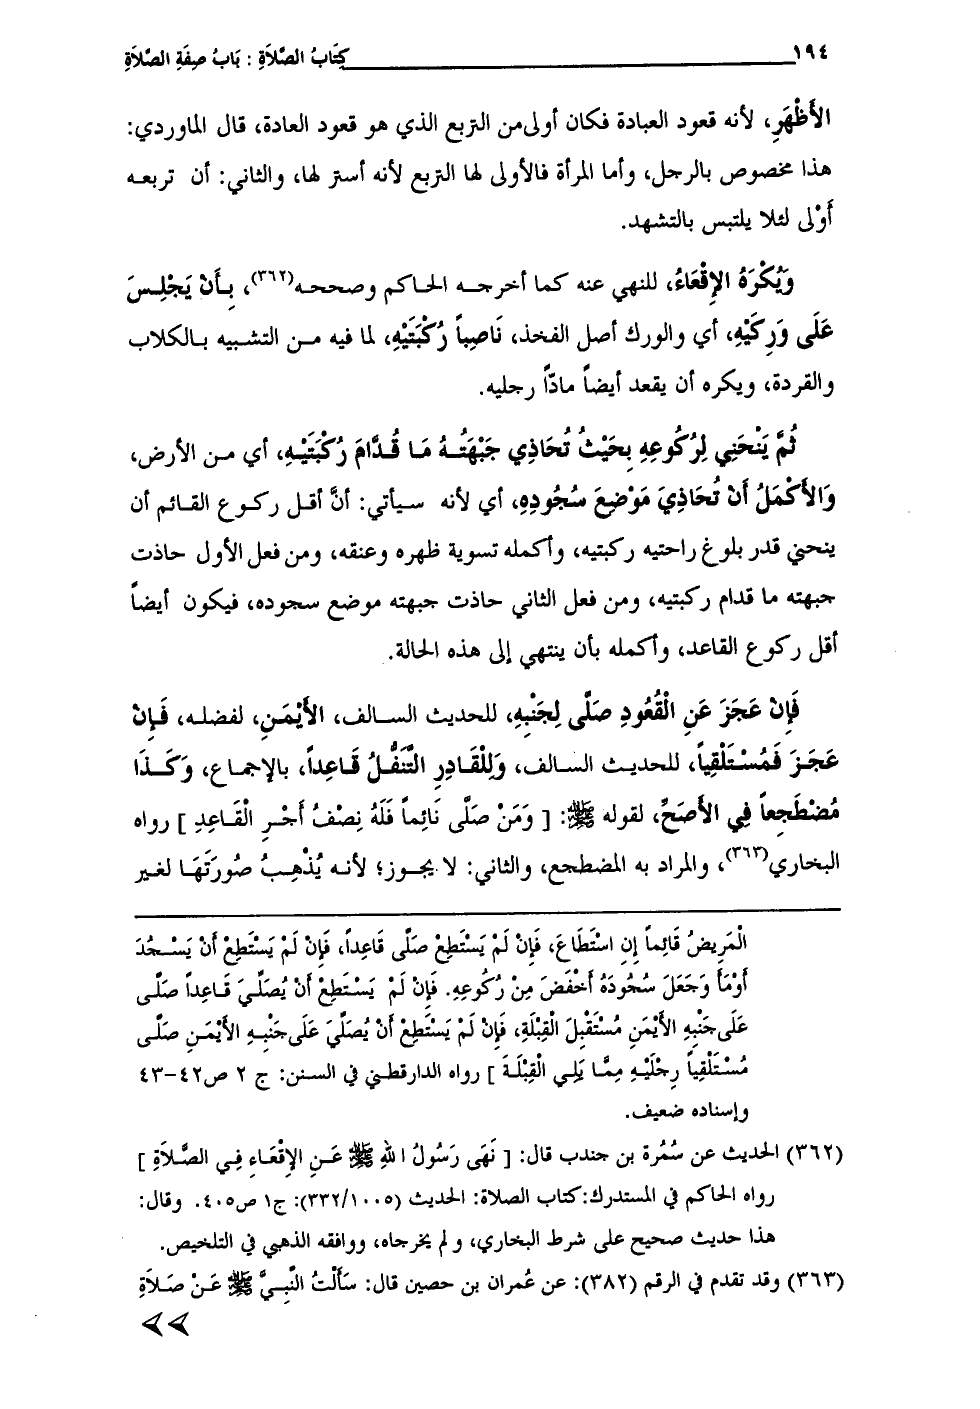 ١٩٤ كِتَابُ الصَّلاَةِ : بَابُ صِفَةِ الصَّلاَةِ
الأَظْهَرِ، لأنه قعود العبادة فكان أولى من التربع الذي هو قعود العادة، قال الماوردي:
هذا مخصوص بالرجل، وأما المرأة فالأولى لها التربع لأنه أستر لها، والثاني: أن تربعه
أَوْلى لئلا يلتبس بالتشهد.
وَيُكْرَهُ الإِقْعَاءُ، للنهي عنه كما أخرجه الحاكم وصححه(٣٦٢)، بِأَنْ يَجْلِسَ
عَلَى وَرِكَيْهِ، أي والورك أصل الفخذ، نَاصِباً رُكْبَتَيْهِ، لما فيه من التشبيه بالكلاب
والقردة، ويكره أن يقعد أيضاً مادّاً رجليه.
ثُمَّ يَنْحَنِي لِرُكُوعِهِ بِحَيْثُ تُحَاذِي جَبْهَتُهُ مَا قُدَّامَ رُكْبَتَيْهِ، أي من الأرض،
وَالأَكْمَلُ أَنْ تُحَاذِيَ مَوْضِعَ سُجُودِهِ، أي لأنه سيأتي: أنَّ أقل ركوع القائم أن
ينحني قدر بلوغ راحتيه ركبتيه، وأكمله تسوية ظهره وعنقه، ومن فعل الأول حاذت
جبهته ما قدام ركبتيه، ومن فعل الثاني حاذت جبهته موضع سجوده، فيكون أيضاً
أقل ركوع القاعد، وأكمله بأن ينتهي إلى هذه الحالة.
فَإِنْ عَجَزَ عَنِ الْقُعُودِ صَلَّى لِجَنْبِهِ، للحديث السالف، الأَيْمَنِ، لفضله، فَإِنْ
عَجَزَ فَمُسْتَلْقِياً، للحديث السالف، وَلِلْقَادِرِ التَّنَفُّلُ قَاعِداً، بالإجماع، وَكَذَا
مُضْطَجِعاً فِي الأَصَحِّ، لقوله ﷺ: [ وَمَنْ صَلَّى نَائِماً فَلَهُ نِصْفُ أَجْرِ الْقَاعِدِ ] رواه
البخاري(٣٦٣)، والمراد به المضطجع، والثاني: لا يجوز؛ لأنه يُذْهِبُ صُورَتَهَا لغير
الْمَرِيضُ قَائِماً إِنِ اسْتَطَاعَ، فَإِنْ لَمْ يَسْتَطِعْ صَلَّى قَاعِداً، فَإِنْ لَمْ يَسْتَطِعْ أَنْ يَسْجُدَ
أَوْمَأَ وَجَعَلَ سُجُودَهُ أَخْفَضَ مِنْ رُكُوعِهِ. فَإِنْ لَمْ يَسْتَطِعْ أَنْ يُصَلِّيَ قَاعِداً صَلَّى
عَلَى جَنْبِهِ الأَيْمَنِ مُسْتَقْبِلَ الْقِبْلَةِ، فَإِنْ لَمْ يَسْتَطِعْ أَنْ يُصَلِّيَ عَلَى جَنْبِهِ الأَيْمَنِ صَلَّى
مُسْتَلْقِياً رِجْلَيْهِ مِمَّا يَلِي الْقِبْلَةَ ] رواه الدارقطني في السنن: ج ٢ ص٤٢-٤٣
وإسناده ضعيف.
(٣٦٢) الحديث عن سَمُرة بن جندب قال: [ نَهَى رَسُولُ اللهِ ﷺ عَنِ الإِقْعَاءِ فِي الصَّلاَةِ ]
رواه الحاكم في المستدرك:كتاب الصلاة: الحديث (٣٣٢/١٠٠٥): ج١ ص٤٠٥. وقال:
هذا حديث صحيح على شرط البخاري، ولم يخرجاه، ووافقه الذهبي في التلخيص.
(٣٦٣) وقد تقدم في الرقم (٣٨٢): عن عُمران بن حصين قال: سَأَلْتُ النَّبِيَّ ﷺ عَنْ صَلاَةِ